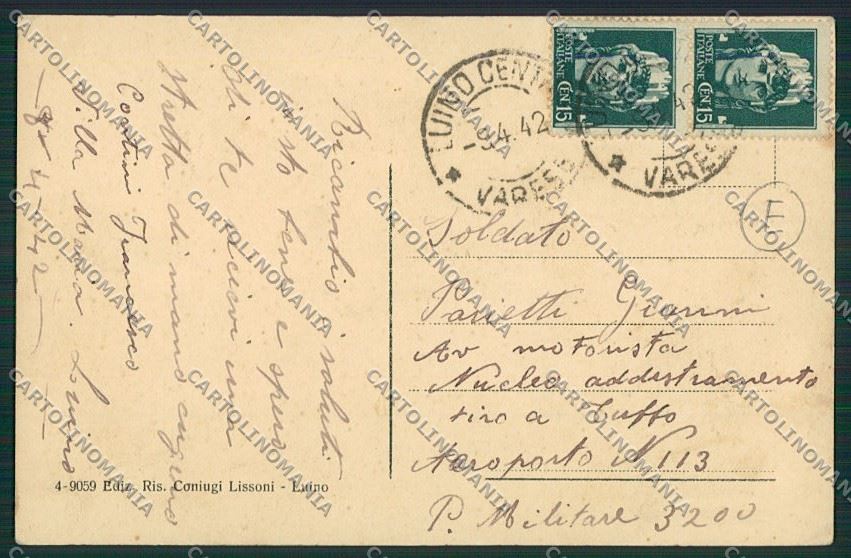 Ricambio i saluti
sto bene e spero
di te ricevi una
stretta di mano cugino
Contini Francesco
Villa Maria. Luino
8-4-42
4-9059 Ediz. Ris. Coniugi Lissoni - Luino
LUINO CENTRO
8.4.42
VARESE
VARESE
POSTE ITALIANE
CENT. 15
POSTE ITALIANE
CENT. 15
E
Soldato
Parietti Gianni
Av motorista
Nucleo addestramento
tiro a Tuffo
Aeroporto N 113
P. Militare 3200
CARTOLINOMANIA